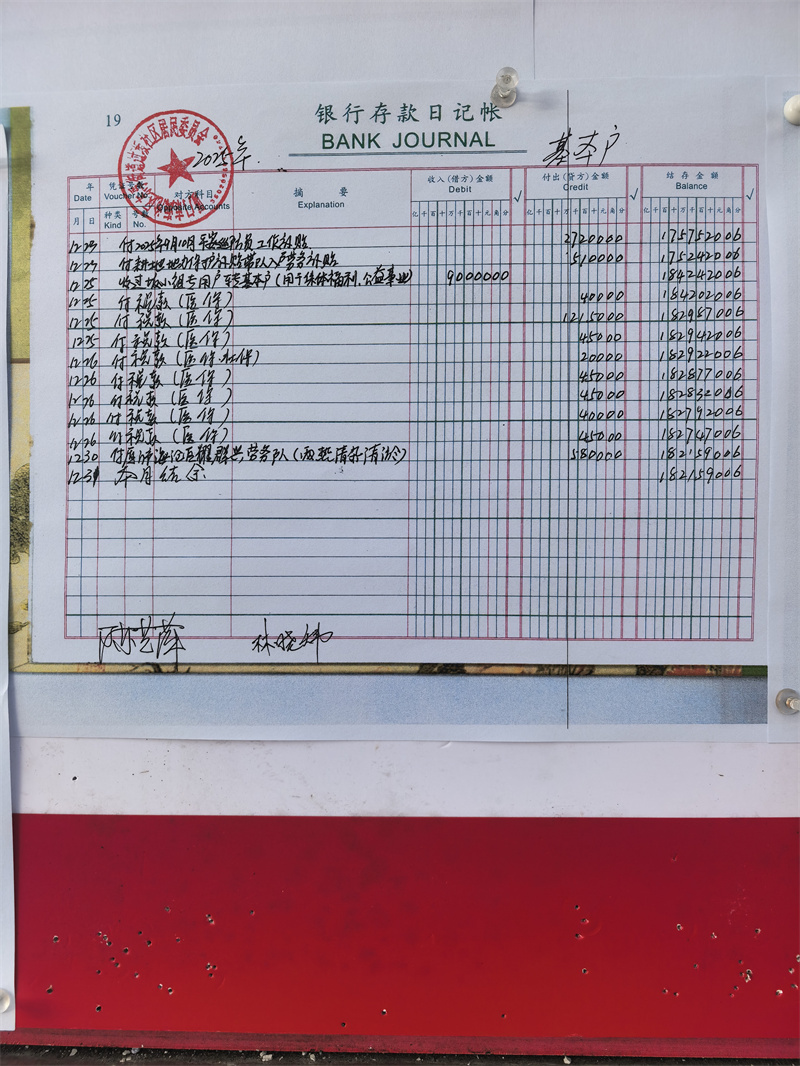 19
银行存款日记帐
BANK JOURNAL
2025年.
基本户
年
Date
凭证号数
Voucher No.
对方科目
Opposite Accounts
摘 要
Explanation
收入(借方)金额
Debit
√
付出(贷方)金额
Credit
√
结存金额
Balance
√
月 日 种类 Kind 号数 No. 亿千百十万千百十元角分 亿千百十万千百十元角分 亿千百十万千百十元角分
12 23 付2025年9月10月 工作补贴 2720000 175752006
12 23 付耕地地力保护补贴 入户劳务补贴 510000 175242006
12 25 收 小组专用户转基本户(用于集体福利、公益事业) 9000000 184242006
12 25 付税款(医保) 40000 184202006
12 25 付税款(医保) 1215000 182987006
12 25 付税款(医保) 45000 182942006
12 26 付税款(医保.社保) 20000 182922006
12 26 付税款(医保) 45000 182877006
12 26 付税款(医保) 45000 182832006
12 26 付税款(医保) 40000 182792006
12 26 付税款(医保) 45000 182747006
12 30 付厦门海沧区 劳务队( ) 580000 182159006
12 31 本月结余 182159006
林晓